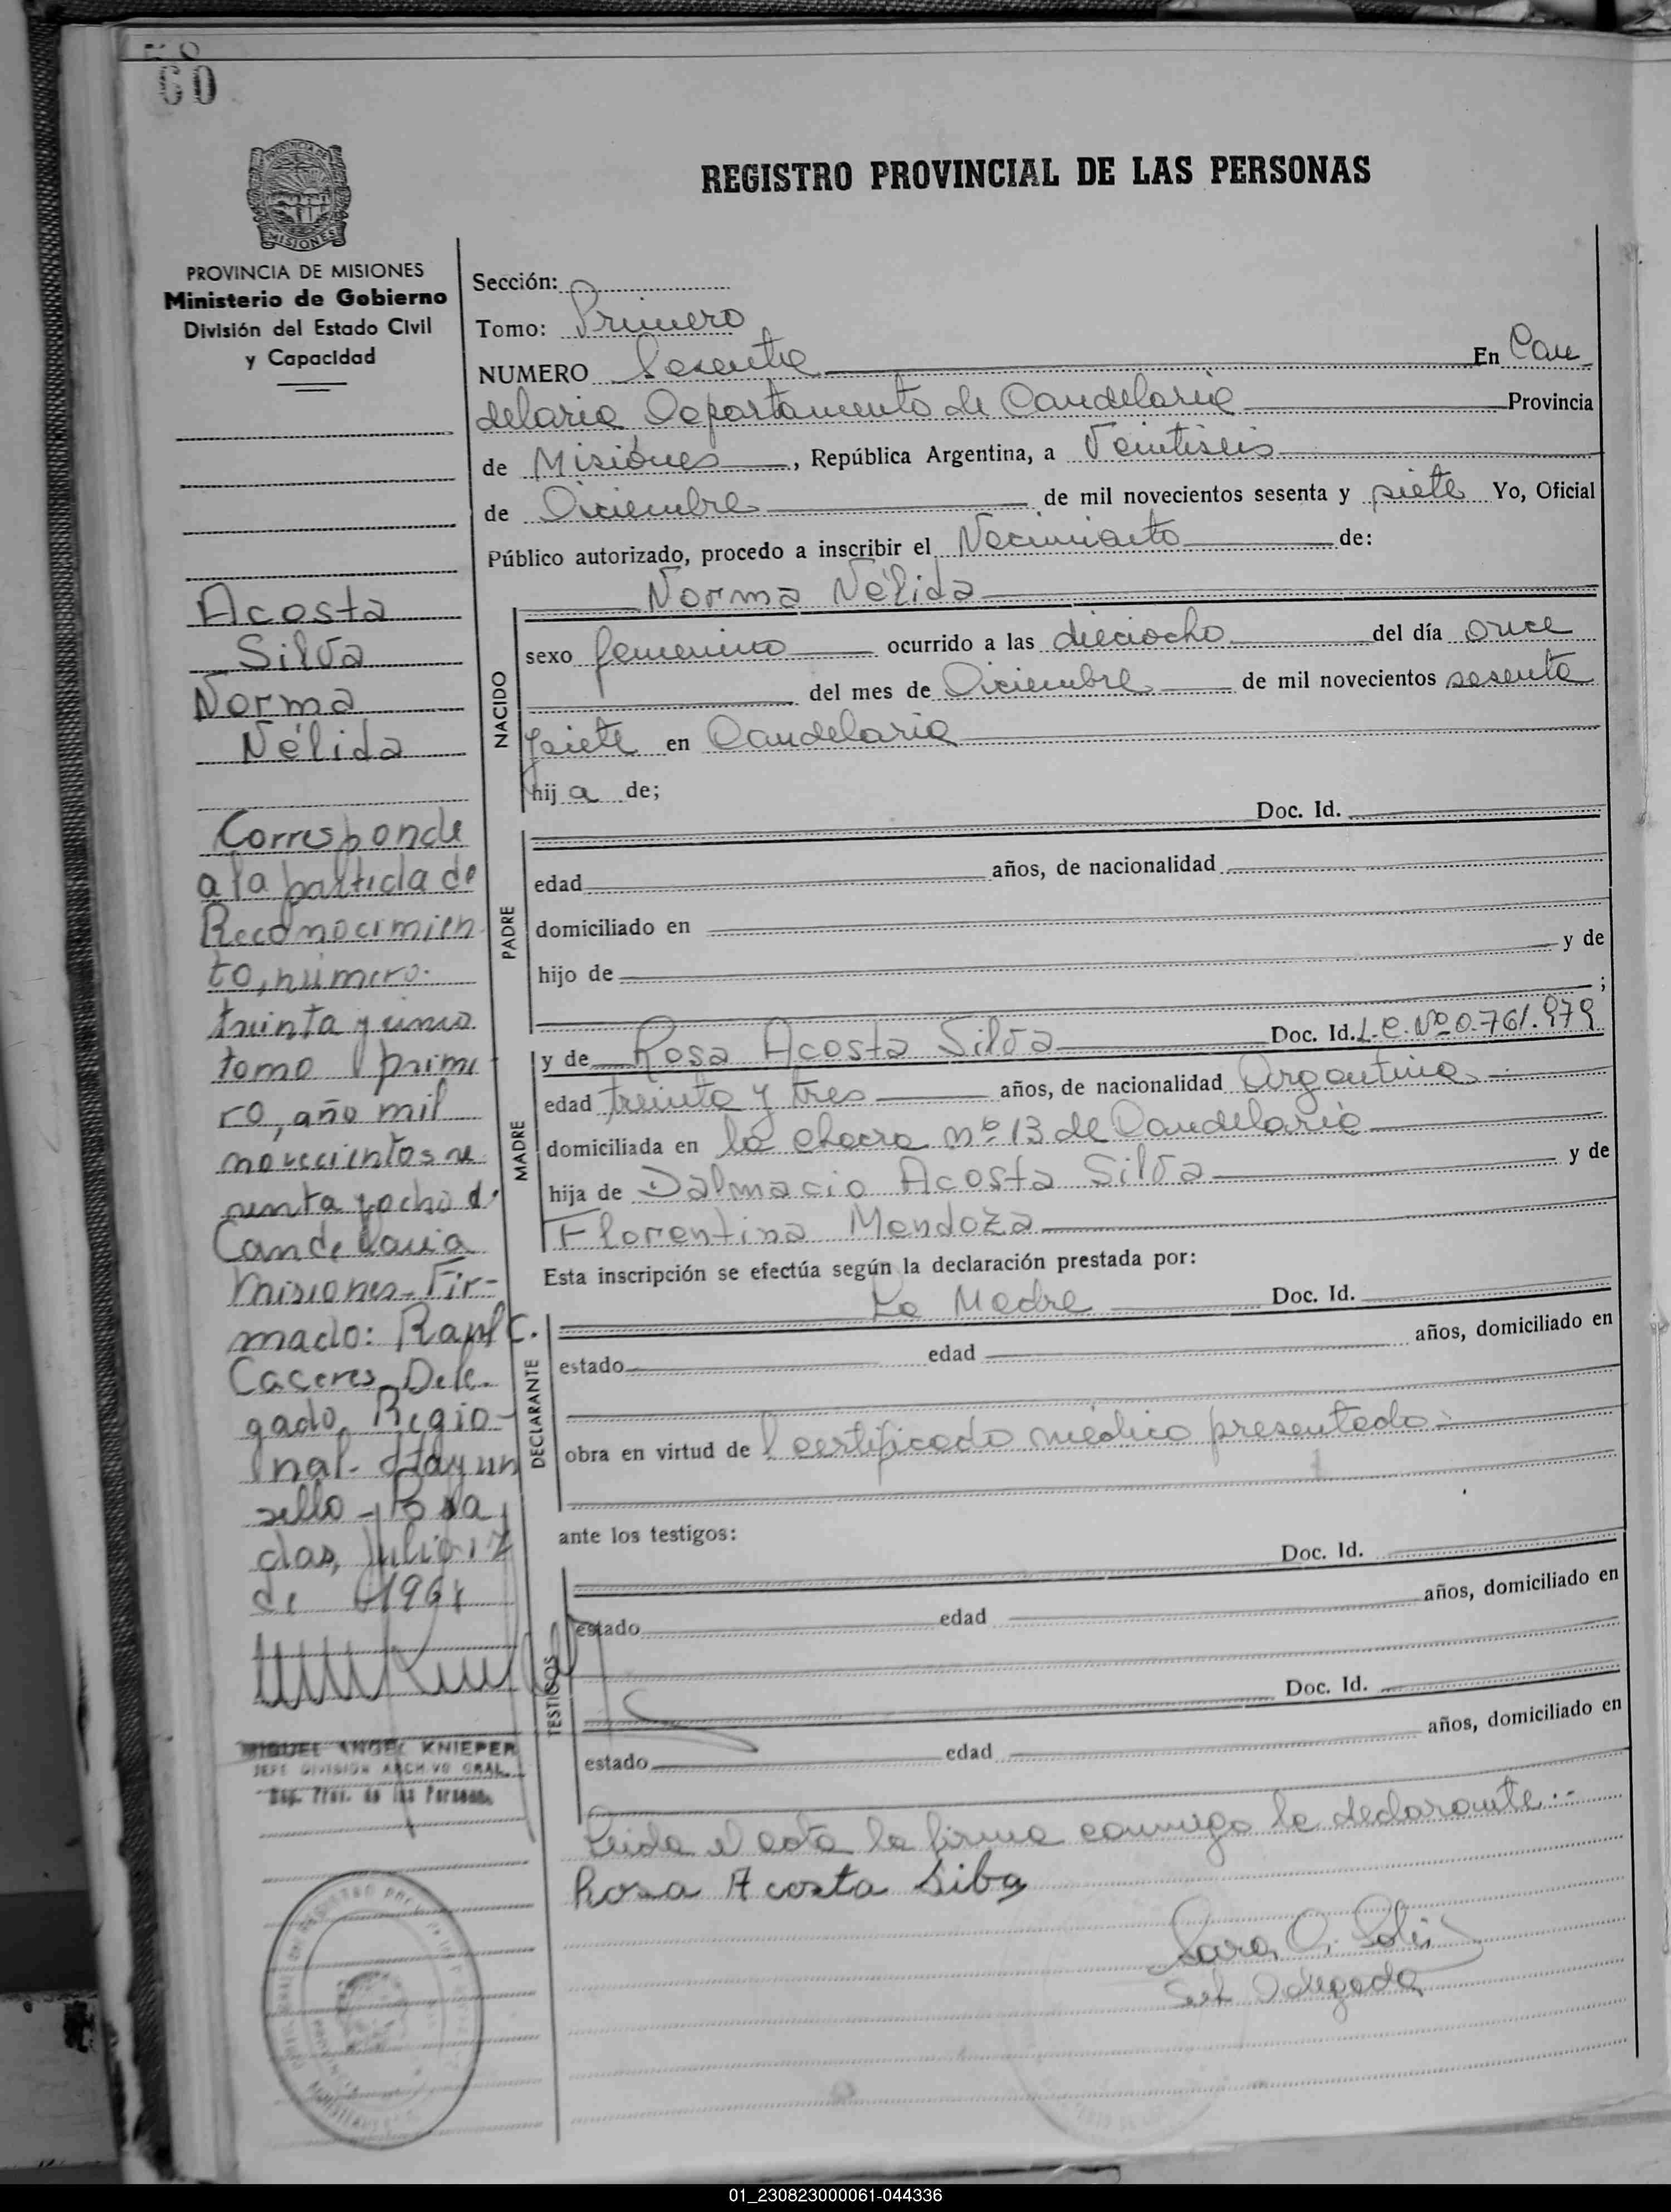 60
MISIONES
PROVINCIA DE MISIONES
Ministerio de Gobierno
División del Estado Civil
y Capacidad
REGISTRO PROVINCIAL DE LAS PERSONAS
Sección:
Tomo: Primero
NUMERO Sesenta En Can
delaria Departamento de Candelaria Provincia
de Misiones, República Argentina, a Veintiseis
de Diciembre de mil novecientos sesenta y siete Yo, Oficial
Público autorizado, procedo a inscribir el Nacimiento de:
Norma Nélida
NACIDO
sexo femenino ocurrido a las dieciocho del día once
del mes de Diciembre de mil novecientos sesenta
y siete en Candelaria
hij a de;
PADRE
Doc. Id.
edad años, de nacionalidad
domiciliado en
hijo de y de
;
MADRE
y de Rosa Acosta Silva Doc. Id. L.C. Nº 0.761.979
edad treinta y tres años, de nacionalidad Argentina
domiciliada en la chacra nº 13 de Candelaria
hija de Dalmacio Acosta Silva y de
Florentina Mendoza
Esta inscripción se efectúa según la declaración prestada por:
DECLARANTE
La Madre Doc. Id.
estado edad años, domiciliado en
obra en virtud de l certificado médico presentado
ante los testigos:
TESTIGOS
Doc. Id.
estado edad años, domiciliado en
Doc. Id.
estado edad años, domiciliado en
Leida el acta la firma conmigo la declarante.-
Rosa Acosta Silba
Sara O. Solis
Sub Delegada
Acosta
Silva
Norma
Nélida
Corresponde
a la partida de
Reconocimien
to, número
treinta y cinco
tomo prime
ro, año mil
novecientos se
senta y ocho de
Candelaria
Misiones- Fir-
mado: Raul C.
Caceres Dele-
gado Regio-
nal- Hay un
sello - Posa
das, Julio 17
de 1968
MIGUEL ANGEL KNIEPER
JEFE DIVISION ARCHIVO GRAL.
Reg. Prov. de las Personas
01_230823000061-044336